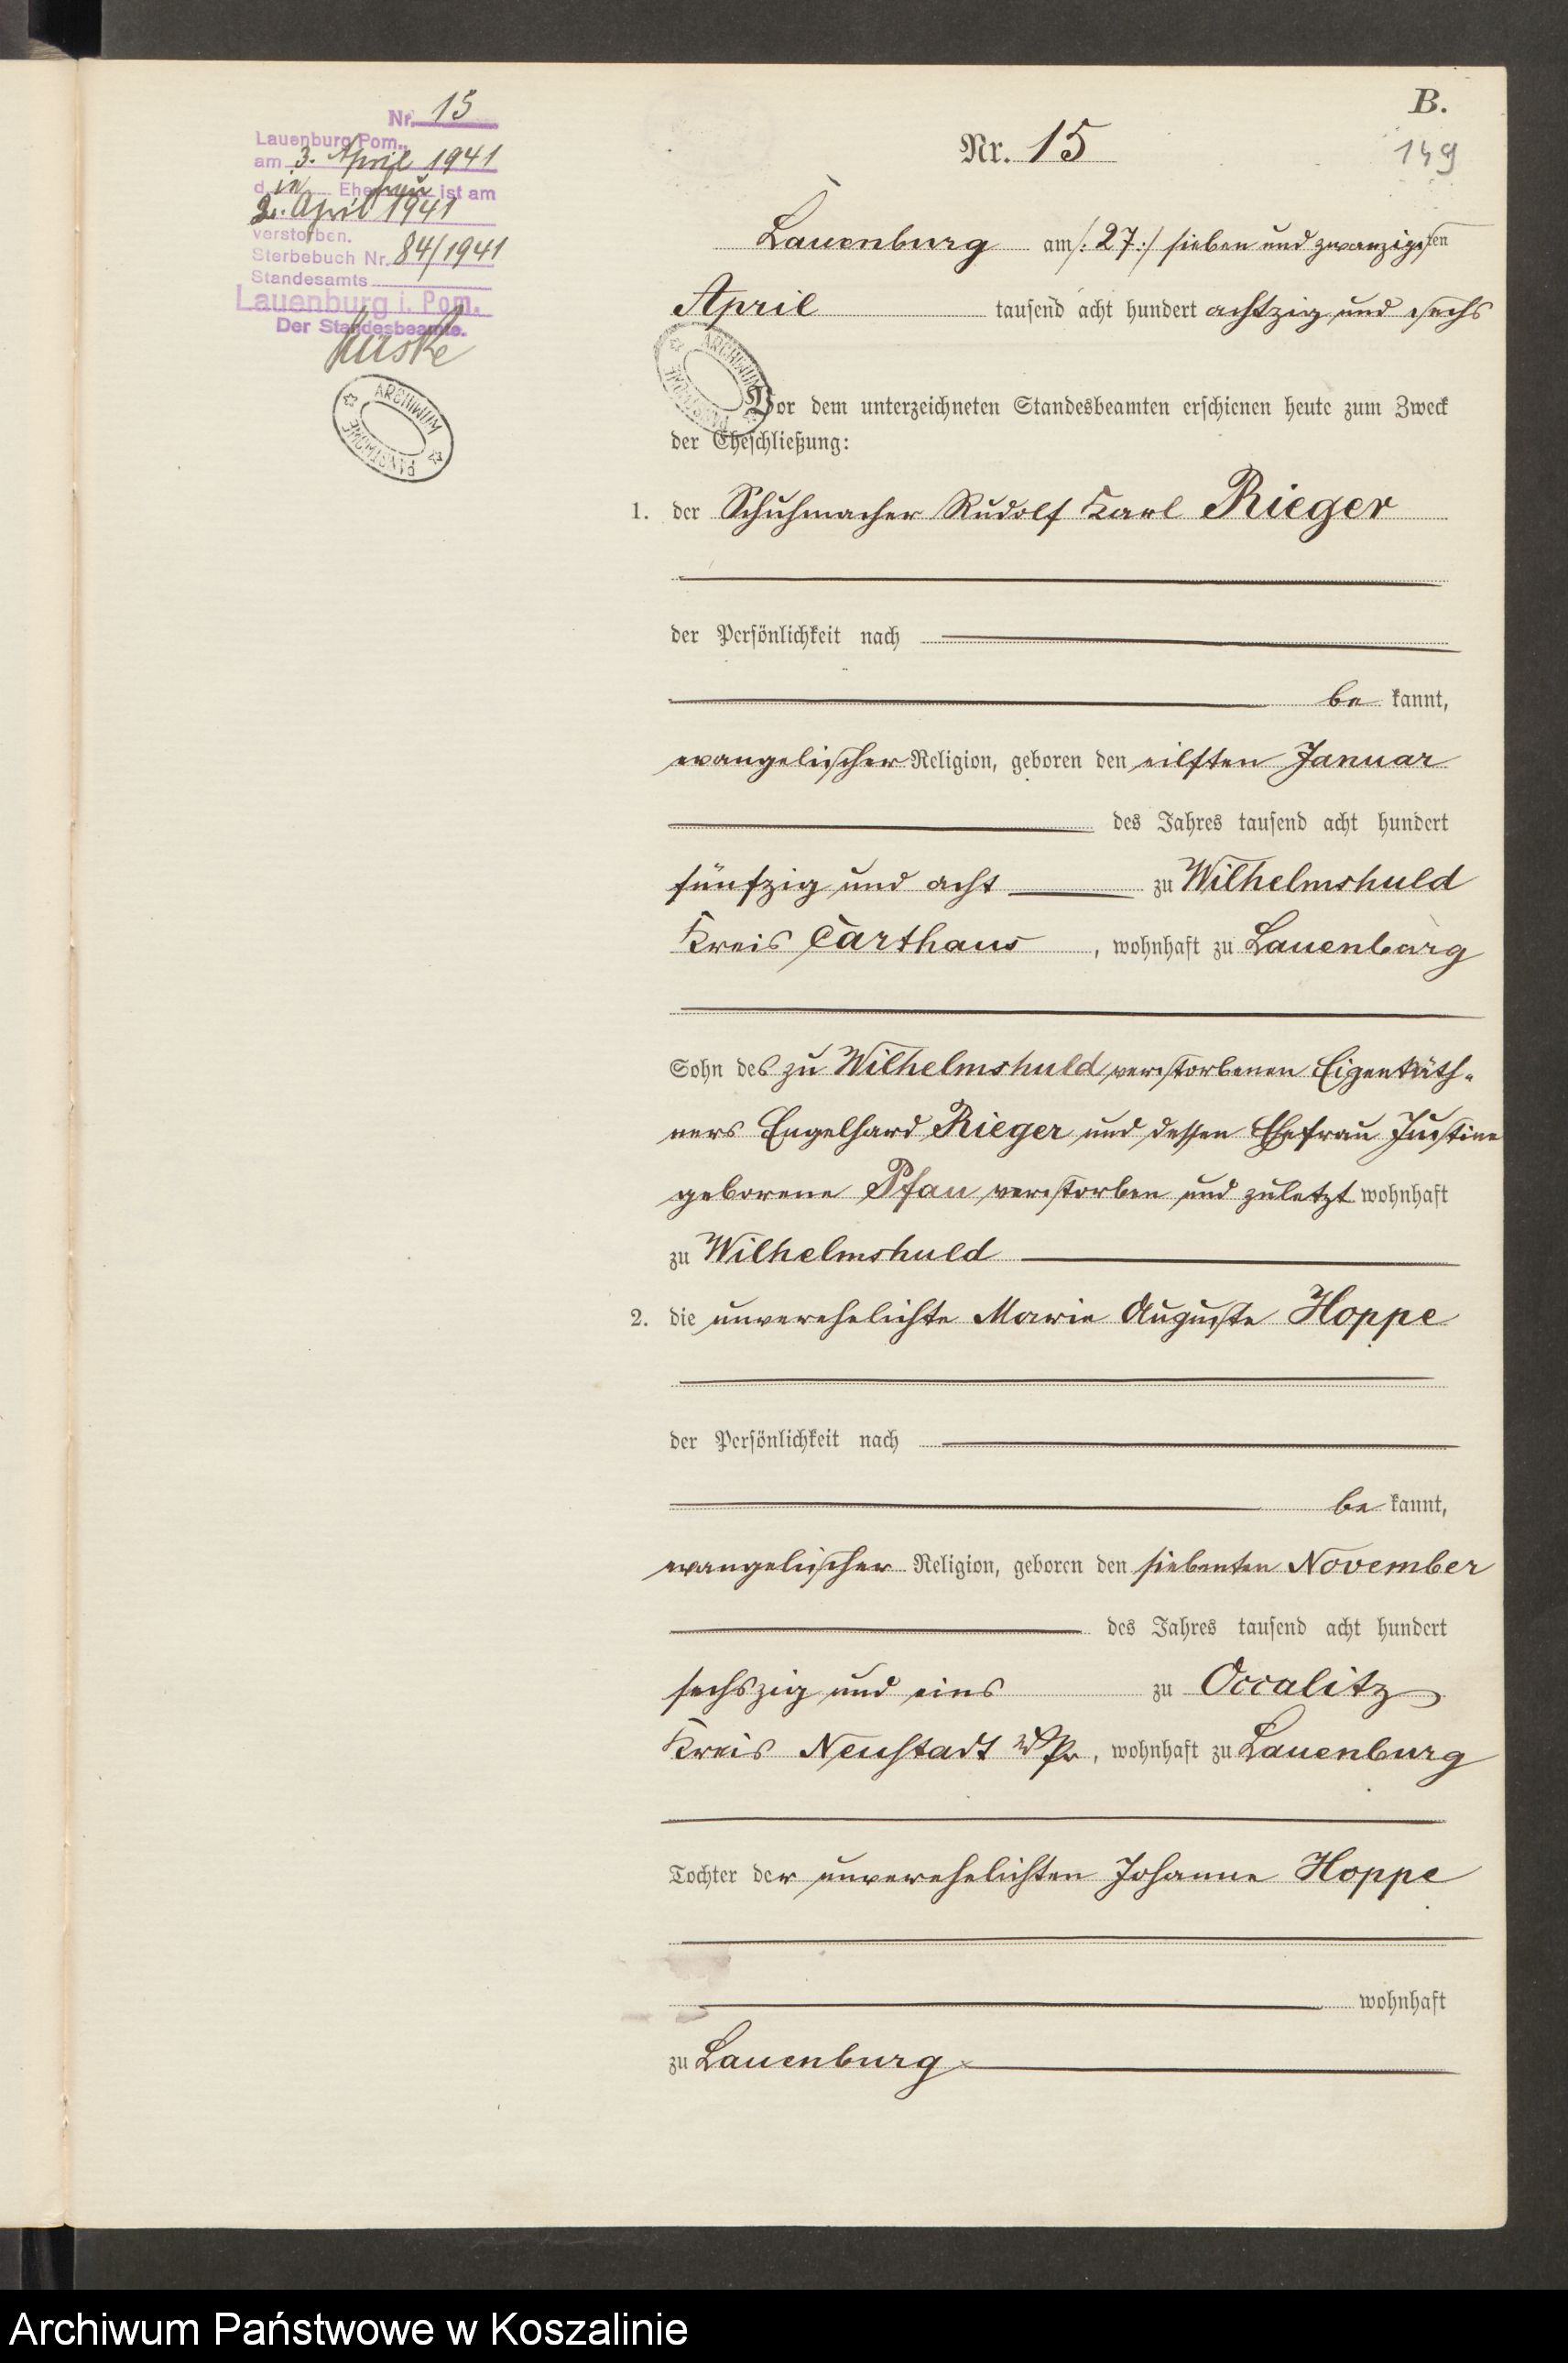 B.
149
Nr. 15
Lauenburg Pom.,
am 3. April 1941
d ie Ehefrau ist am
2. April 1941
verstorben.
Sterbebuch Nr. 84/1941
Standesamts
Lauenburg i. Pom.
Der Standesbeamte.
ARCHIWUM PAŃSTWOWE
Nr. 15
Lauenburg am /: 27 :/ sieben und zwanzigsten
April tausend acht hundert achtzig und sechs
ARCHIWUM PAŃSTWOWE
Vor dem unterzeichneten Standesbeamten erschienen heute zum Zweck
der Eheschließung:
1. der Schuhmacher Rudolf Karl Rieger
der Persönlichkeit nach
be kannt,
evangelischer Religion, geboren den eilften Januar
des Jahres tausend acht hundert
fünfzig und acht zu Wilhelmshuld
Kreis Carthaus, wohnhaft zu Lauenburg
Sohn des zu Wilhelmshuld verstorbenen Eigenkäth-
ners Engelhard Rieger und dessen Ehefrau Justine
geborene Pfau verstorben und zuletzt wohnhaft
zu Wilhelmshuld
2. die unverehelichte Marie Auguste Hoppe
der Persönlichkeit nach
be kannt,
evangelischer Religion, geboren den siebenten November
des Jahres tausend acht hundert
sechszig und eins zu Occalitz
Kreis Neustadt W/Pr, wohnhaft zu Lauenburg
Tochter der unverehelichten Johanne Hoppe
wohnhaft
zu Lauenburg
Archiwum Państwowe w Koszalinie